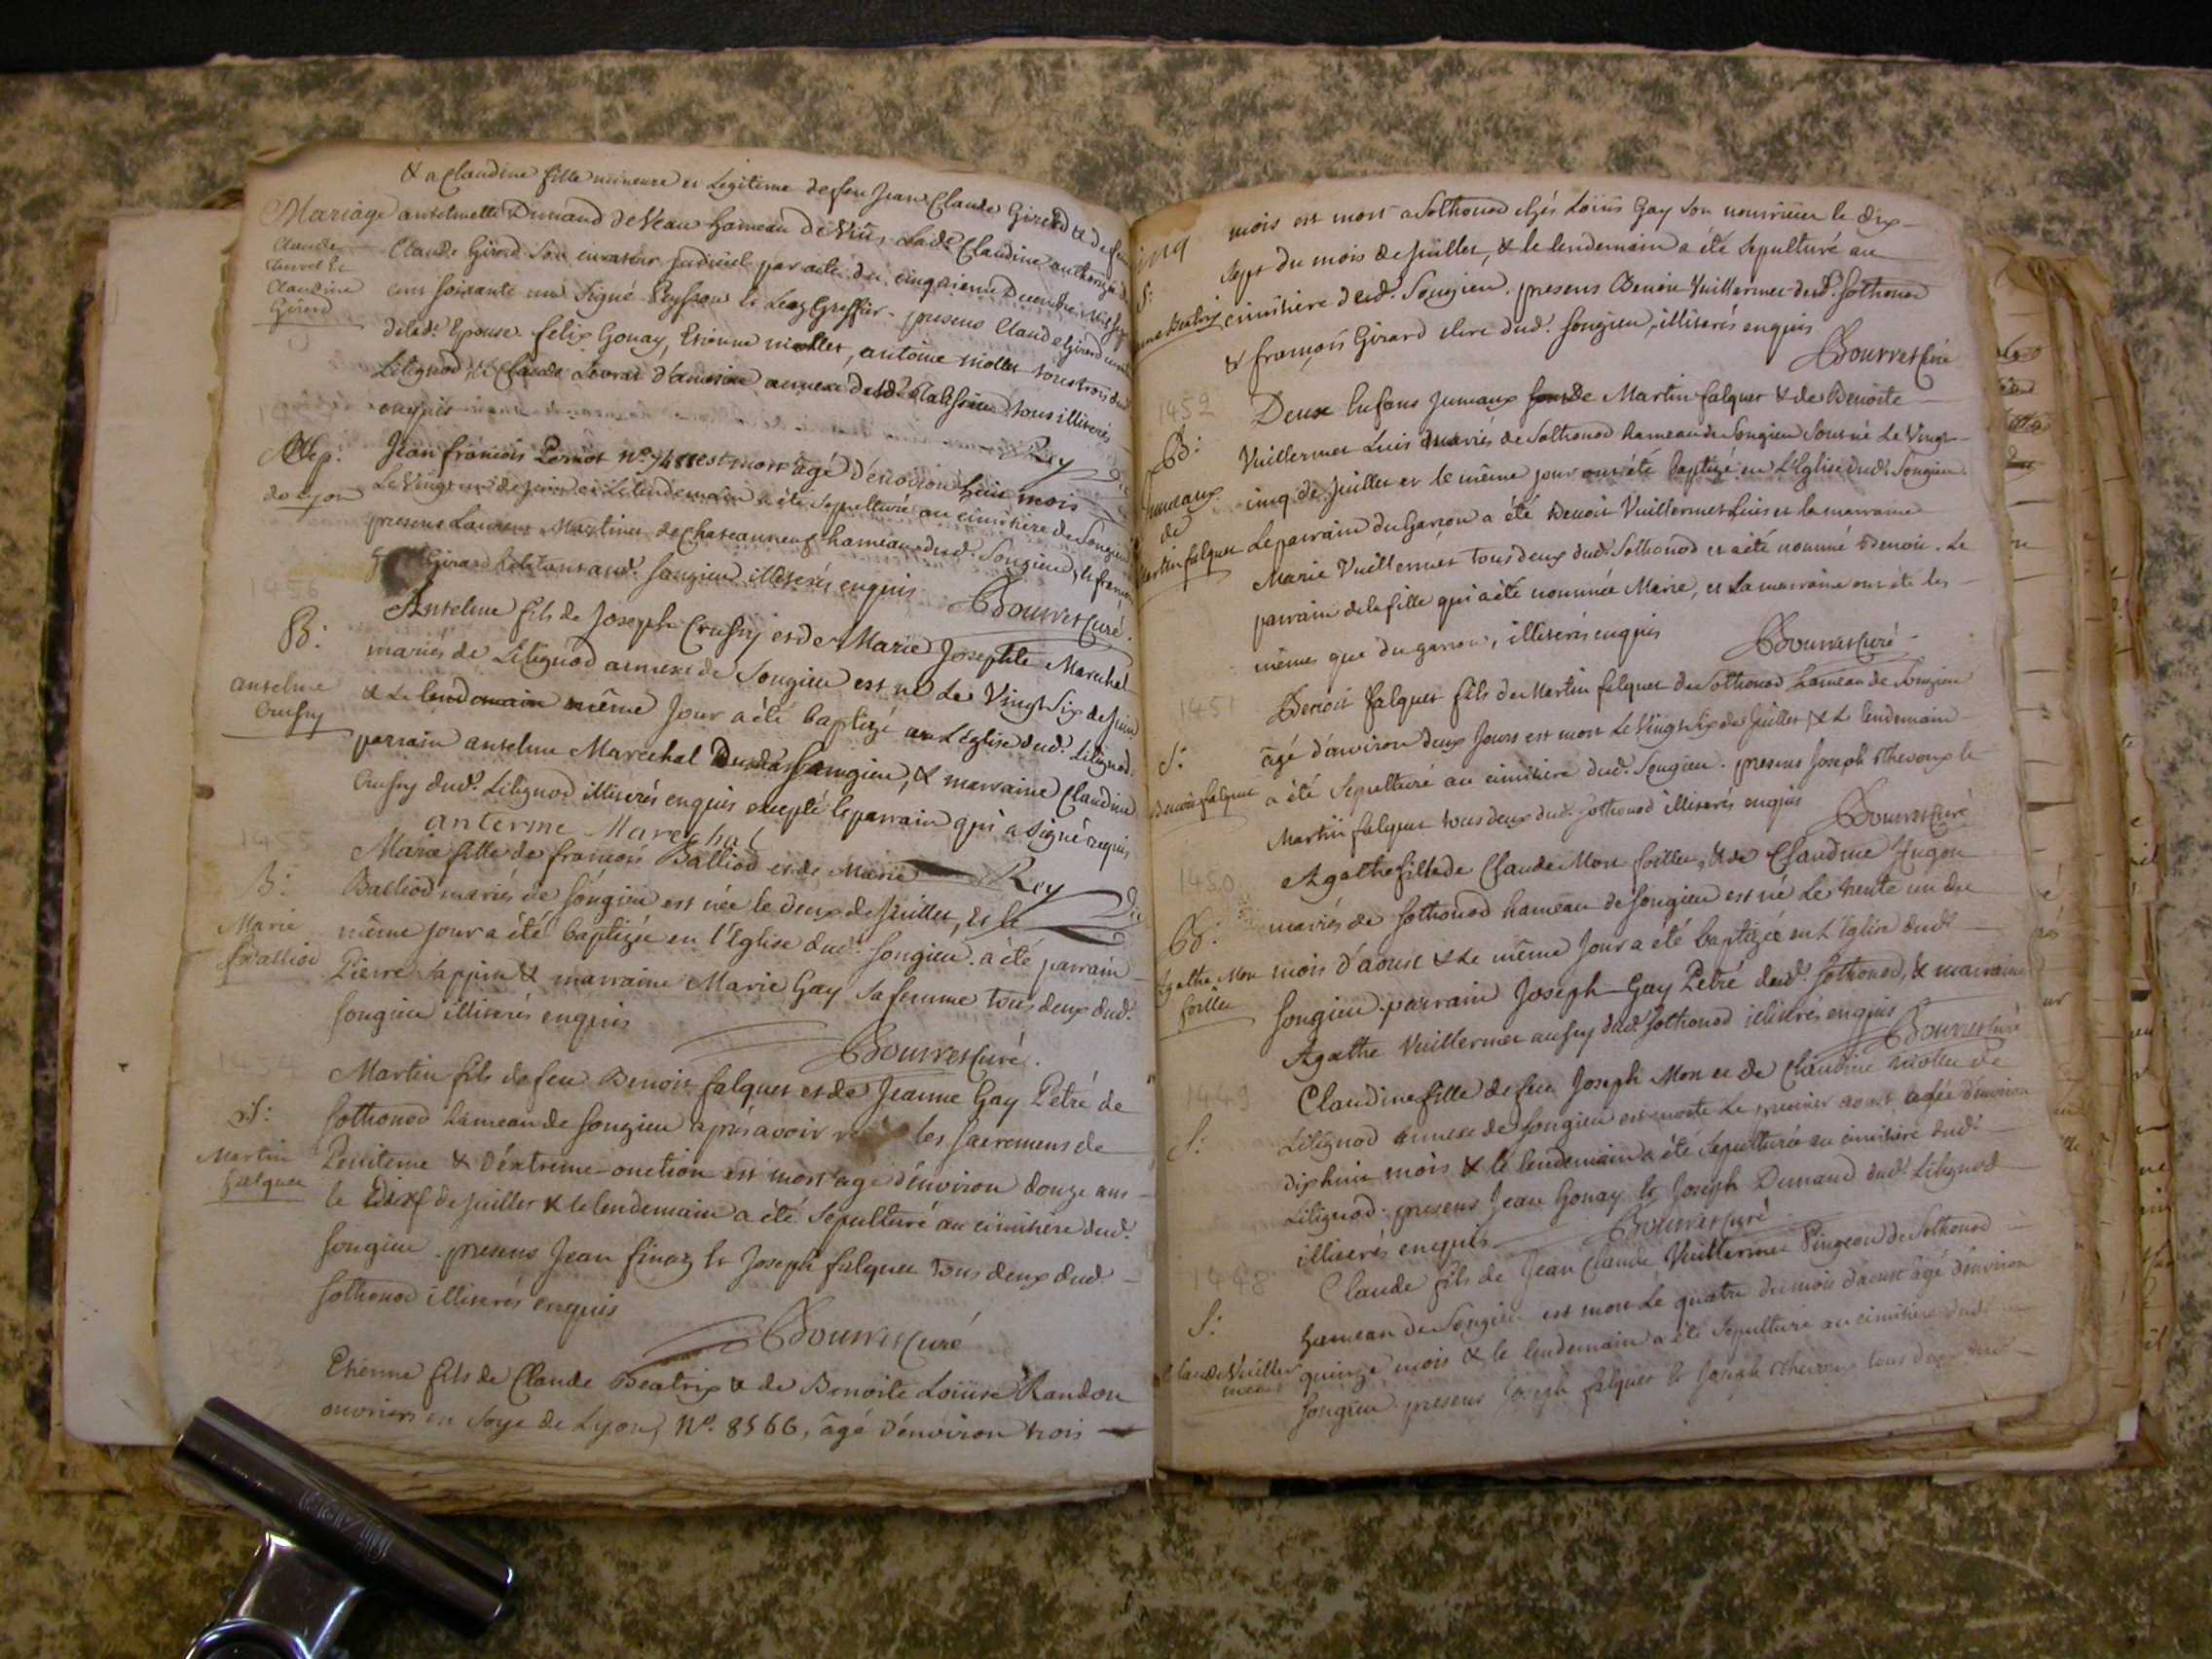 & a Claudine fille mineure et Legitime de feu Jean Claude Girerd & de feue
Mariage
Claude
Claudine
Girerd
antelmette Dumand de Veau hameau de Virïu, lad.e Claudine authorizée de
Claude Girerd son curateur judiciel par acte du cinquieme
cent soixante un Signé Peysson le greffier. presens Claude Girerd
delad.e Epouse. felix Gonay, Etienne mollet, antoine mollet tous trois dud.
Litignod, & Claude annexe tous illiterés
enquis
Rey
S.p.
de Lyon
Jean françois Pernot N.o 7488 est mort âgé d'environ huit mois
Le Vingt de juin et Le lendemain a été Sepulturé au cimitiere de Songieu
presens Laurent Martinet de Chateauneuf hameau dud. Songieu, & françois
Girard habitant aud. Songieu illiterés enquis
Bourret Curé.
1456
B:
anselme
Crussy
Anselme fils de Joseph Crussy et de Marie Josephte Marechal
mariés de Litignod annexe de Songieu est né Le Vingt Six de Juin
& Le lendemain même Jour a été baptizé en L'Eglise dud. Litignod.
parrain anselme Marechal Songieu, & marraine Claudine
Crussy dud. Litignod illiterés enquis excepté le parrain qui a signé requis
anterme Marechal
Rey
1455
B:
Marie
Balliod
Marie fille de francois Balliod et de Marie
Balliod mariés de Songieu est née le deux de Juillet, & le
même jour a été baptizée en l'Eglise dud. Songieu. a été parrain
Pierre Sappin & marraine Marie Gay sa femme tous deux dud.
Songieu illiterés enquis
Bourret Curé.
S:
Martin
falquet
Martin fils de feu Benoit falquet et de Jeanne Gay Petré de
Sothonod hameau de Songieu après avoir les Sacremens de
Penitence & D'extrême-onction est mort agé d'environ douze ans
le de Juillet & le lendemain a été Sepulturé au cimitiere dud.
Songieu. presens Jean finaz & Joseph falquet tous deux dud.
Sothonod illiterés enquis
Bourret Curé
Etienne fils de Claude Beatrix & de Benoite Loüise Randon
ouvriers en Soye de Lyon, N.o 8566, âgé d'environ trois
S:
Beatrix
mois est mort a Sothonod chés Loüis Gay son nourricier le dix
Sept du mois de Juillet, & le lendemain a été Sepulturé au
cimitiere dud. Songieu. presens Benoit Vuillermet dud. Sothonod
& françois Girard clerc dud. Songieu, illiterés enquis
Bourret Curé
1452
B:
Jumeaux
de
Martin falquet
Deux Enfans Jumeaux de Martin falquet & de Benoite
Vuillermet Luis mariés de Sothonod hameau de Songieu Sont né Le Vingt
cinq de Juillet et le même jour ont été baptizé en L'Eglise dud. Songieu
Le parrain du Garçon a été Benoit Vuillermet Luis et la marraine
Marie Vuillermet tous deux dud. Sothonod et a été nommé Benoit. Le
parrain de la fille qui a été nommée Marie, et La marraine ont été les
mêmes que du garçon, illiterés enquis
Bourret Curé
1451
S:
Benoit falquet
Benoit falquet fils de Martin falquet de Sothonod hameau de Songieu
âgé d'environ deux Jours est mort Le Vingt Six de Juillet & Le lendemain
a été Sepulturé au cimitiere dud. Songieu. presens Joseph Thevoux &
Martin falquet tous deux dud. Sothonod illiterés enquis
Bourret Curé
1450
B:
Agathe Mon
foillet
Agathe fille de Claude Mon foillet, & de Claudine Jugon
mariés de Sothonod hameau de Songieu est né Le trente un du
mois d'aoust & Le même Jour a été baptizée en L'Eglise dud.
Songieu. parrain Joseph Gay Petré dud. Sothonod, & marraine
Agathe Vuillermet aussy dud. Sothonod illiterés enquis
Bourret Curé
1449
S:
Claudine fille de feu Joseph Mon et de Claudine mollet de
Litignod annexe de Songieu est morte Le premier aoust agée d'environ
dixhuit mois & le lendemain a été Sepulturée au cimitiere dud.
Litignod. presens Jean Gonay & Joseph Dumand dud. Litignod
illiterés enquis
Bourret Curé
1448
S:
Claude Vuillermet
Claude fils de Jean Claude Vuillermet Pingeon de Sothonod
hameau de Songieu est mort Le quatre du mois d'aoust âgé d'environ
quinze mois & le lendemain a été Sepulturé au cimitiere dud.
Songieu. presens Joseph falquet & Joseph Thevoux tous deux dud.